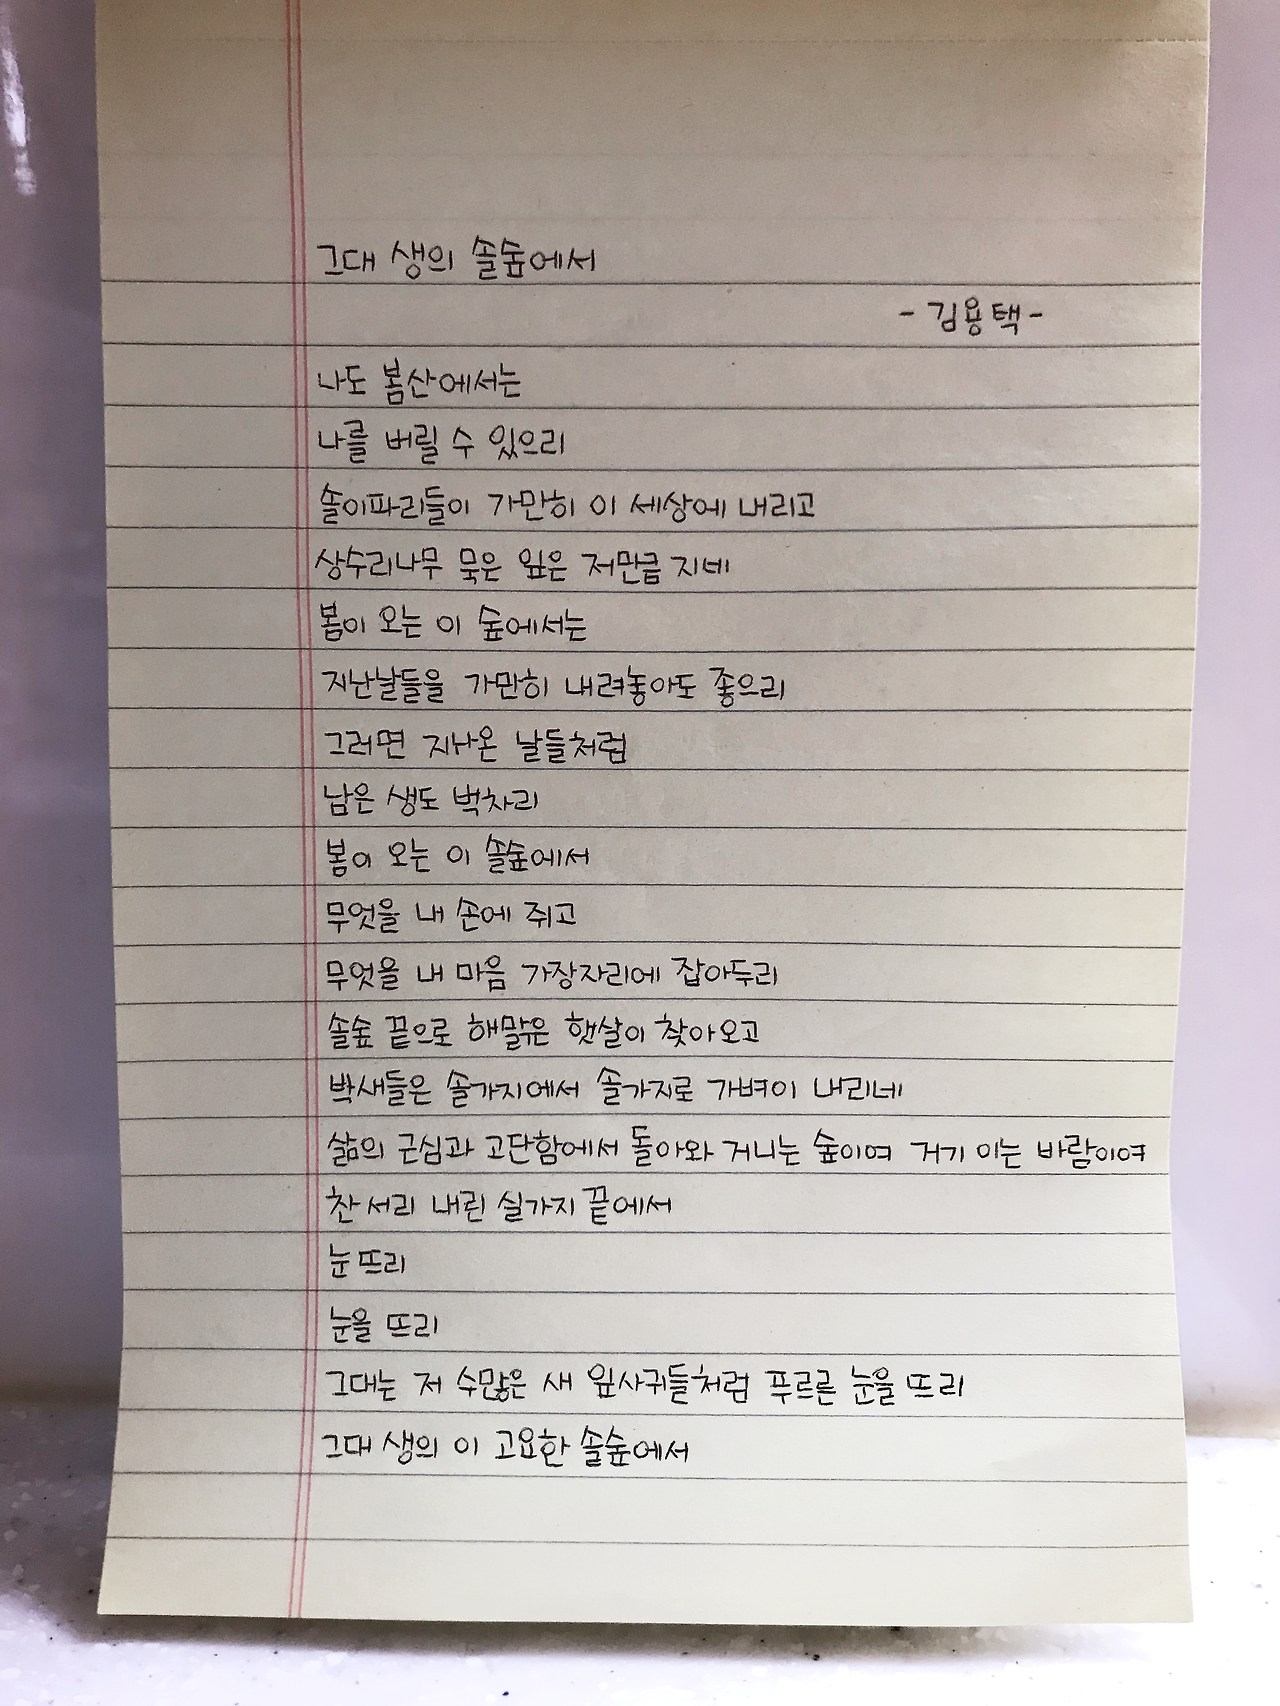 그대 생의 솔숲에서
- 김용택 -
나도 봄산에서는
나를 버릴 수 있으리
솔이파리들이 가만히 이 세상에 내리고
상수리나무 묵은 잎은 저만큼 지네
봄이 오는 이 숲에서는
지난날들을 가만히 내려놓아도 좋으리
그러면 지나온 날들처럼
남은 생도 벅차리
봄이 오는 이 솔숲에서
무엇을 내 손에 쥐고
무엇을 내 마음 가장자리에 잡아두리
솔숲 끝으로 해맑은 햇살이 찾아오고
박새들은 솔가지에서 솔가지로 가벼이 내리네
삶의 근심과 고단함에서 돌아와 거니는 숲이여 거기 이는 바람이여
찬 서리 내린 실가지 끝에서
눈 뜨리
눈을 뜨리
그대는 저 수많은 새 잎사귀들처럼 푸르른 눈을 뜨리
그대 생의 이 고요한 솔숲에서